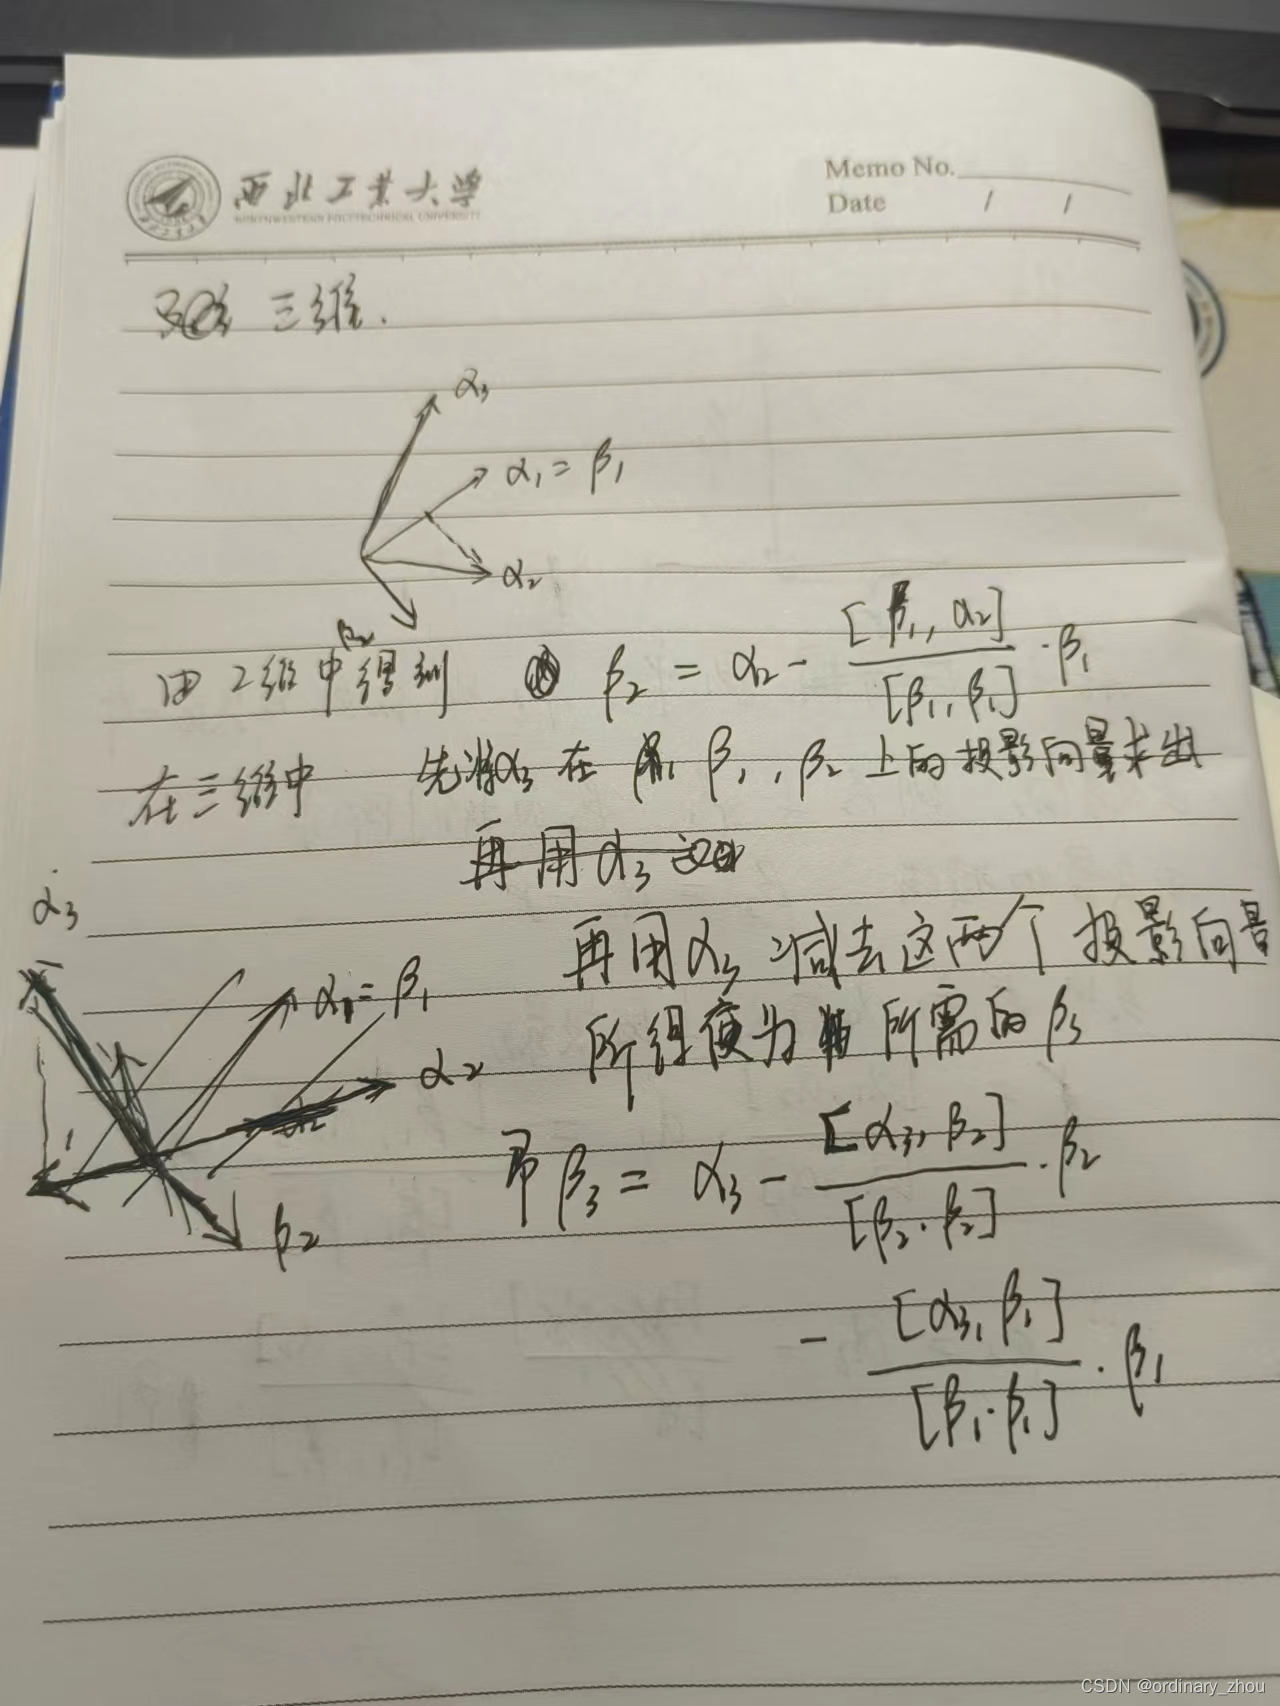 西北工业大学
NORTHWESTERN POLYTECHNICAL UNIVERSITY
Memo No.
Date / /
三维.
α₃
α₁ = β₁
α₂
β₂
由2维中得到 β₂ = α₂ - [β₁, α₂] / [β₁, β₁] · β₁
在三维中 先将α₃在 β₁, β₂ 上的投影向量求出
再用α₃
再用α₃减去这两个投影向量
所得便为所需的β₃
α₃
α₁ = β₁
α₂
β₂
即 β₃ = α₃ - [α₃, β₂] / [β₂·β₂] · β₂
- [α₃, β₁] / [β₁·β₁] · β₁
CSDN @ordinary_zhou